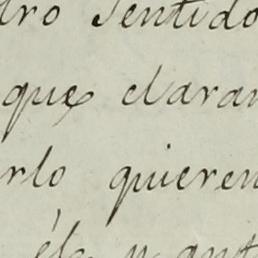 tro Sentido
que claram
rlo quieren
él y ant